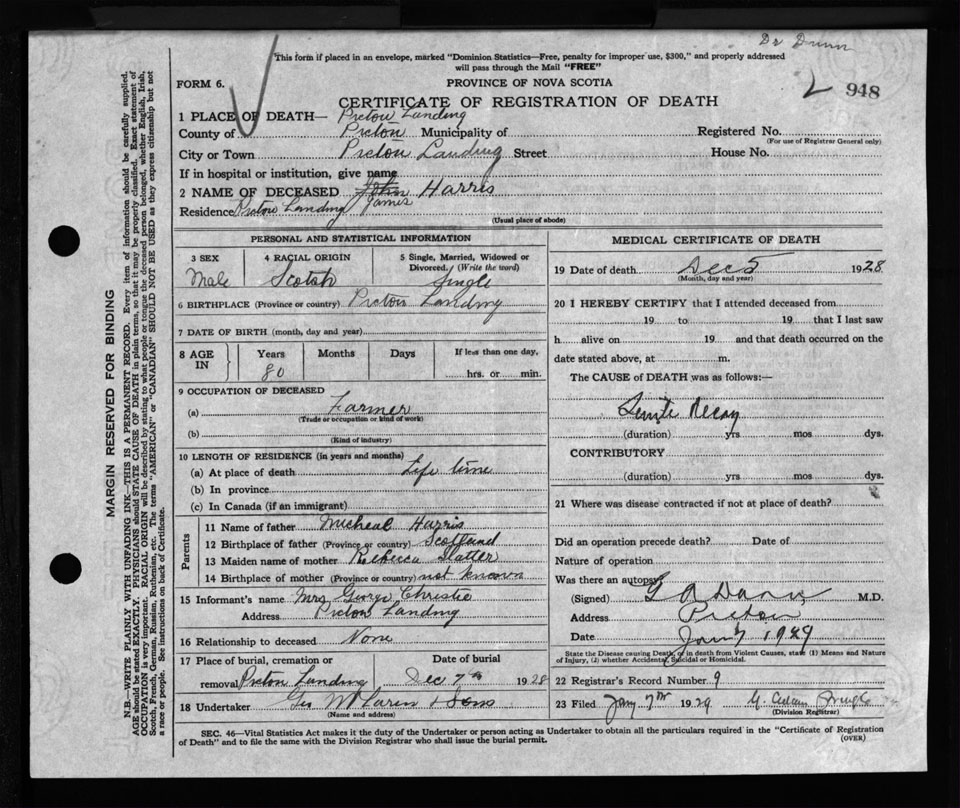 Dr Dunn
This form if placed in an envelope, marked "Dominion Statistics—Free, penalty for improper use, $300," and properly addressed
will pass through the Mail "FREE"
FORM 6.
PROVINCE OF NOVA SCOTIA
948
CERTIFICATE OF REGISTRATION OF DEATH
1 PLACE OF DEATH— Pictou Landing
County of Pictou Municipality of Registered No.
(For use of Registrar General only)
City or Town Pictou Landing Street House No.
If in hospital or institution, give name
2 NAME OF DECEASED John Harris
James
Residence Pictou Landing
(Usual place of abode)
PERSONAL AND STATISTICAL INFORMATION
3 SEX 4 RACIAL ORIGIN 5 Single, Married, Widowed or
Divorced. (Write the word)
Male Scotch Single
6 BIRTHPLACE (Province or country) Pictou Landing
7 DATE OF BIRTH (month, day and year)
8 AGE IN Years Months Days If less than one day,
80 hrs. or min.
9 OCCUPATION OF DECEASED
(a) Farmer
(Trade or occupation or kind of work)
(b)
(Kind of industry)
10 LENGTH OF RESIDENCE (in years and months)
(a) At place of death Life time
(b) In province
(c) In Canada (if an immigrant)
Parents
11 Name of father Micheal Harris
12 Birthplace of father (Province or country) Scotland
13 Maiden name of mother Rebecca Slatter
14 Birthplace of mother (Province or country) not known
15 Informant's name Mrs George Christie
Address Pictou Landing
16 Relationship to deceased None
17 Place of burial, cremation or Date of burial
removal Pictou Landing Dec 7th 1928
18 Undertaker Geo McLaren & Sons
(Name and address)
MEDICAL CERTIFICATE OF DEATH
19 Date of death Dec 5 1928
(Month, day and year)
20 I HEREBY CERTIFY that I attended deceased from
19 to 19 that I last saw
h alive on 19 and that death occurred on the
date stated above, at m.
The CAUSE of DEATH was as follows:—
Senile Decay
(duration) yrs mos dys.
CONTRIBUTORY
(duration) yrs mos dys.
21 Where was disease contracted if not at place of death?
Did an operation precede death? Date of
Nature of operation
Was there an autopsy
(Signed) Dunn M.D.
Address Pictou
Date Jan 7 1929
State the Disease causing Death, or in death from Violent Causes, state (1) Means and Nature
of Injury, (2) whether Accidental, Suicidal or Homicidal.
22 Registrar's Record Number 9
23 Filed Jany 7th 1929
(Division Registrar)
SEC. 46—Vital Statistics Act makes it the duty of the Undertaker or person acting as Undertaker to obtain all the particulars required in the "Certificate of Registration
of Death" and to file the same with the Division Registrar who shall issue the burial permit.
(OVER)
MARGIN RESERVED FOR BINDING
N.B.—WRITE PLAINLY WITH UNFADING INK—THIS IS A PERMANENT RECORD. Every item of information should be carefully supplied.
AGE should be stated EXACTLY. PHYSICIANS should STATE CAUSE OF DEATH in plain terms, so that it may be properly classified. Exact statement of
OCCUPATION is very important. RACIAL ORIGIN will be described by stating to what people or tongue the deceased person belonged, whether English, Irish,
Scotch, French, German, Russian, Ruthenian, etc. The terms "AMERICAN" or "CANADIAN" SHOULD NOT BE USED as they express citizenship but not
a race or people. See instructions on back of Certificate.